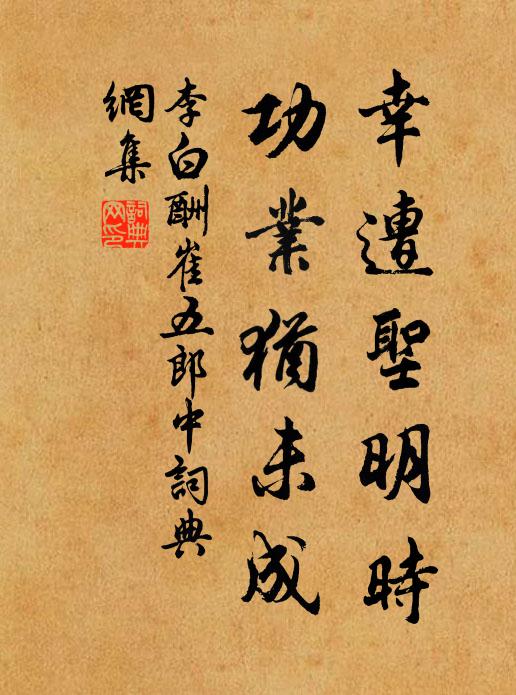 幸遭聖明時
功業猶未成
李白酬崔五郎中詞典
網集
詞典網印